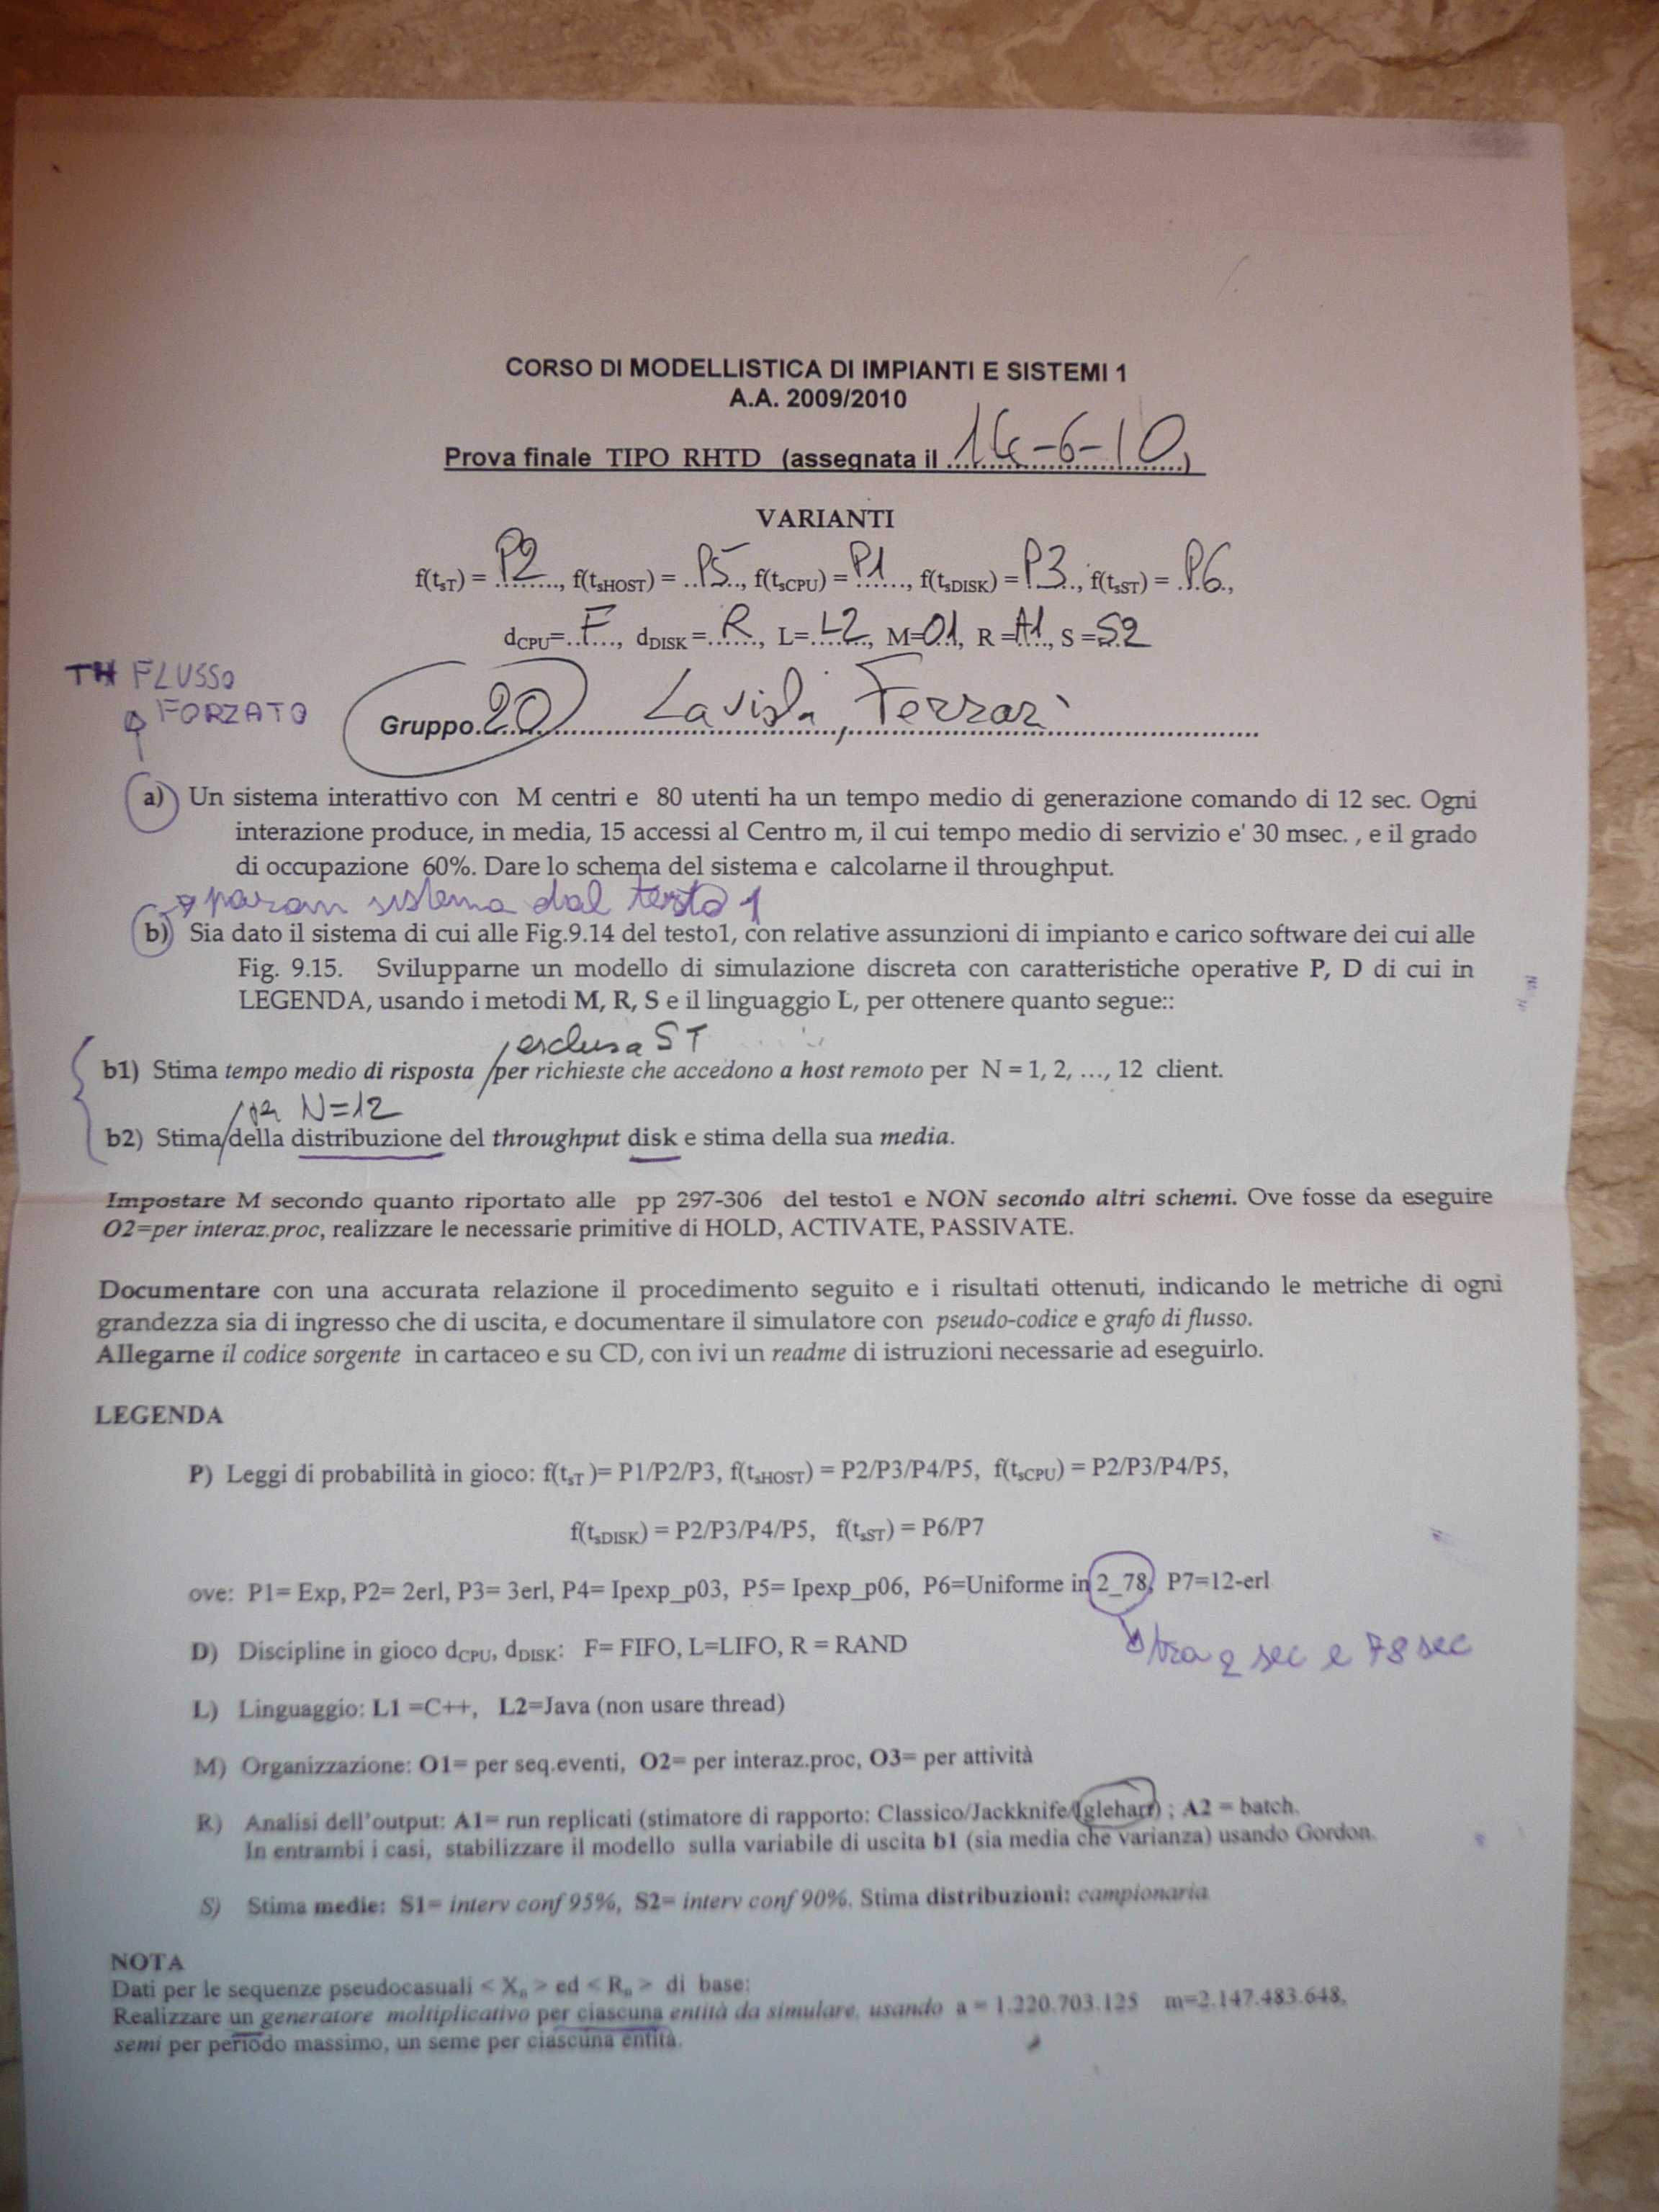 CORSO DI MODELLISTICA DI IMPIANTI E SISTEMI 1
A.A. 2009/2010
Prova finale TIPO RHTD (assegnata il 14-6-10)
VARIANTI
f(tsT) = P2, f(tsHOST) = P5, f(tsCPU) = P1, f(tsDISK) = P3, f(tsST) = P6,
dCPU= F, dDISK = R, L= L2, M=O1, R =A1, S =S2
TH FLUSSO
FORZATO
Gruppo 20 Ferrari
a) Un sistema interattivo con M centri e 80 utenti ha un tempo medio di generazione comando di 12 sec. Ogni
interazione produce, in media, 15 accessi al Centro m, il cui tempo medio di servizio e' 30 msec. , e il grado
di occupazione 60%. Dare lo schema del sistema e calcolarne il throughput.
param sistema dal testo 1
b) Sia dato il sistema di cui alle Fig.9.14 del testo1, con relative assunzioni di impianto e carico software dei cui alle
Fig. 9.15. Svilupparne un modello di simulazione discreta con caratteristiche operative P, D di cui in
LEGENDA, usando i metodi M, R, S e il linguaggio L, per ottenere quanto segue::
esclusa ST
b1) Stima tempo medio di risposta per richieste che accedono a host remoto per N = 1, 2, ..., 12 client.
per N=12
b2) Stima della distribuzione del throughput disk e stima della sua media.
Impostare M secondo quanto riportato alle pp 297-306 del testo1 e NON secondo altri schemi. Ove fosse da eseguire
O2=per interaz.proc, realizzare le necessarie primitive di HOLD, ACTIVATE, PASSIVATE.
Documentare con una accurata relazione il procedimento seguito e i risultati ottenuti, indicando le metriche di ogni
grandezza sia di ingresso che di uscita, e documentare il simulatore con pseudo-codice e grafo di flusso.
Allegarne il codice sorgente in cartaceo e su CD, con ivi un readme di istruzioni necessarie ad eseguirlo.
LEGENDA
P) Leggi di probabilità in gioco: f(tsT )= P1/P2/P3, f(tsHOST) = P2/P3/P4/P5, f(tsCPU) = P2/P3/P4/P5,
f(tsDISK) = P2/P3/P4/P5, f(tsST) = P6/P7
ove: P1= Exp, P2= 2erl, P3= 3erl, P4= Ipexp_p03, P5= Ipexp_p06, P6=Uniforme in 2_78, P7=12-erl
D) Discipline in gioco dCPU, dDISK: F= FIFO, L=LIFO, R = RAND
tra 2 sec e 78 sec
L) Linguaggio: L1 =C++, L2=Java (non usare thread)
M) Organizzazione: O1= per seq.eventi, O2= per interaz.proc, O3= per attività
R) Analisi dell'output: A1= run replicati (stimatore di rapporto: Classico/Jackknife/Iglehart) ; A2 = batch.
In entrambi i casi, stabilizzare il modello sulla variabile di uscita b1 (sia media che varianza) usando Gordon.
S) Stima medie: S1= interv conf 95%, S2= interv conf 90%. Stima distribuzioni: campionaria
NOTA
Dati per le sequenze pseudocasuali < Xn > ed < Rn > di base:
Realizzare un generatore moltiplicativo per ciascuna entità da simulare, usando a = 1.220.703.125 m=2.147.483.648,
semi per periodo massimo, un seme per ciascuna entità.